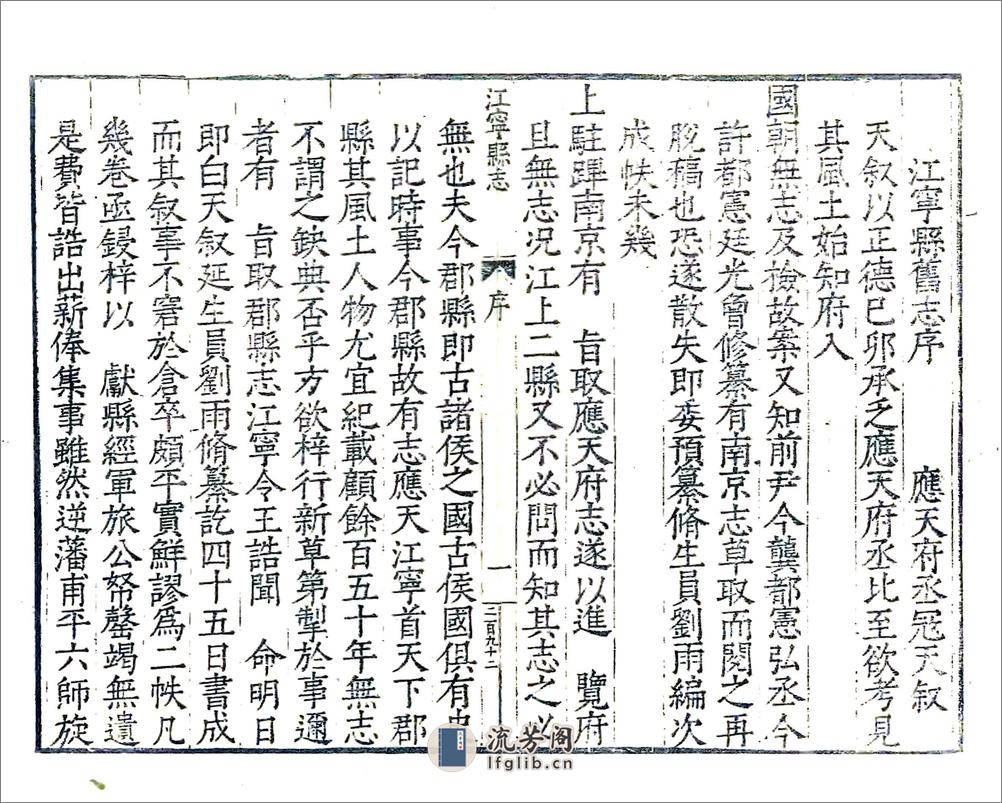 江寧縣舊志序 應天府丞寇天叙
天叙以正德己卯承乏應天府丞比至欲考見
其風土始知府入
國朝無志及檢故案又知前尹今龔都憲弘丞今
許都憲廷光曾修纂有南京志草取而閱之再
脫稿也恐遂散失即委預纂脩生員劉雨編次
成帙未幾
上駐蹕南京有 旨取應天府志遂以進 覽府
且無志況江上二縣又不必問而知其志之必
江寧縣志 序 一 二百九十二
無也夫今郡縣即古諸侯之國古侯國俱有史
以記時事今郡縣故有志應天江寧首天下郡
縣其風土人物尤宜紀載顧餘百五十年無志
不謂之缺典否乎方欲梓行新草第掣於事邇
者有 旨取郡縣志江寧令王誥聞 命明日
即白天叙延生員劉雨脩纂訖四十五日書成
而其叙事不窘於倉卒頗平實鮮謬為二帙凡
幾卷亟鋟梓以 獻縣經軍旅公帑罄竭無遺
是費皆誥出薪俸集事雖然逆藩甫平六師旋
流芳阁
lfglib.cn